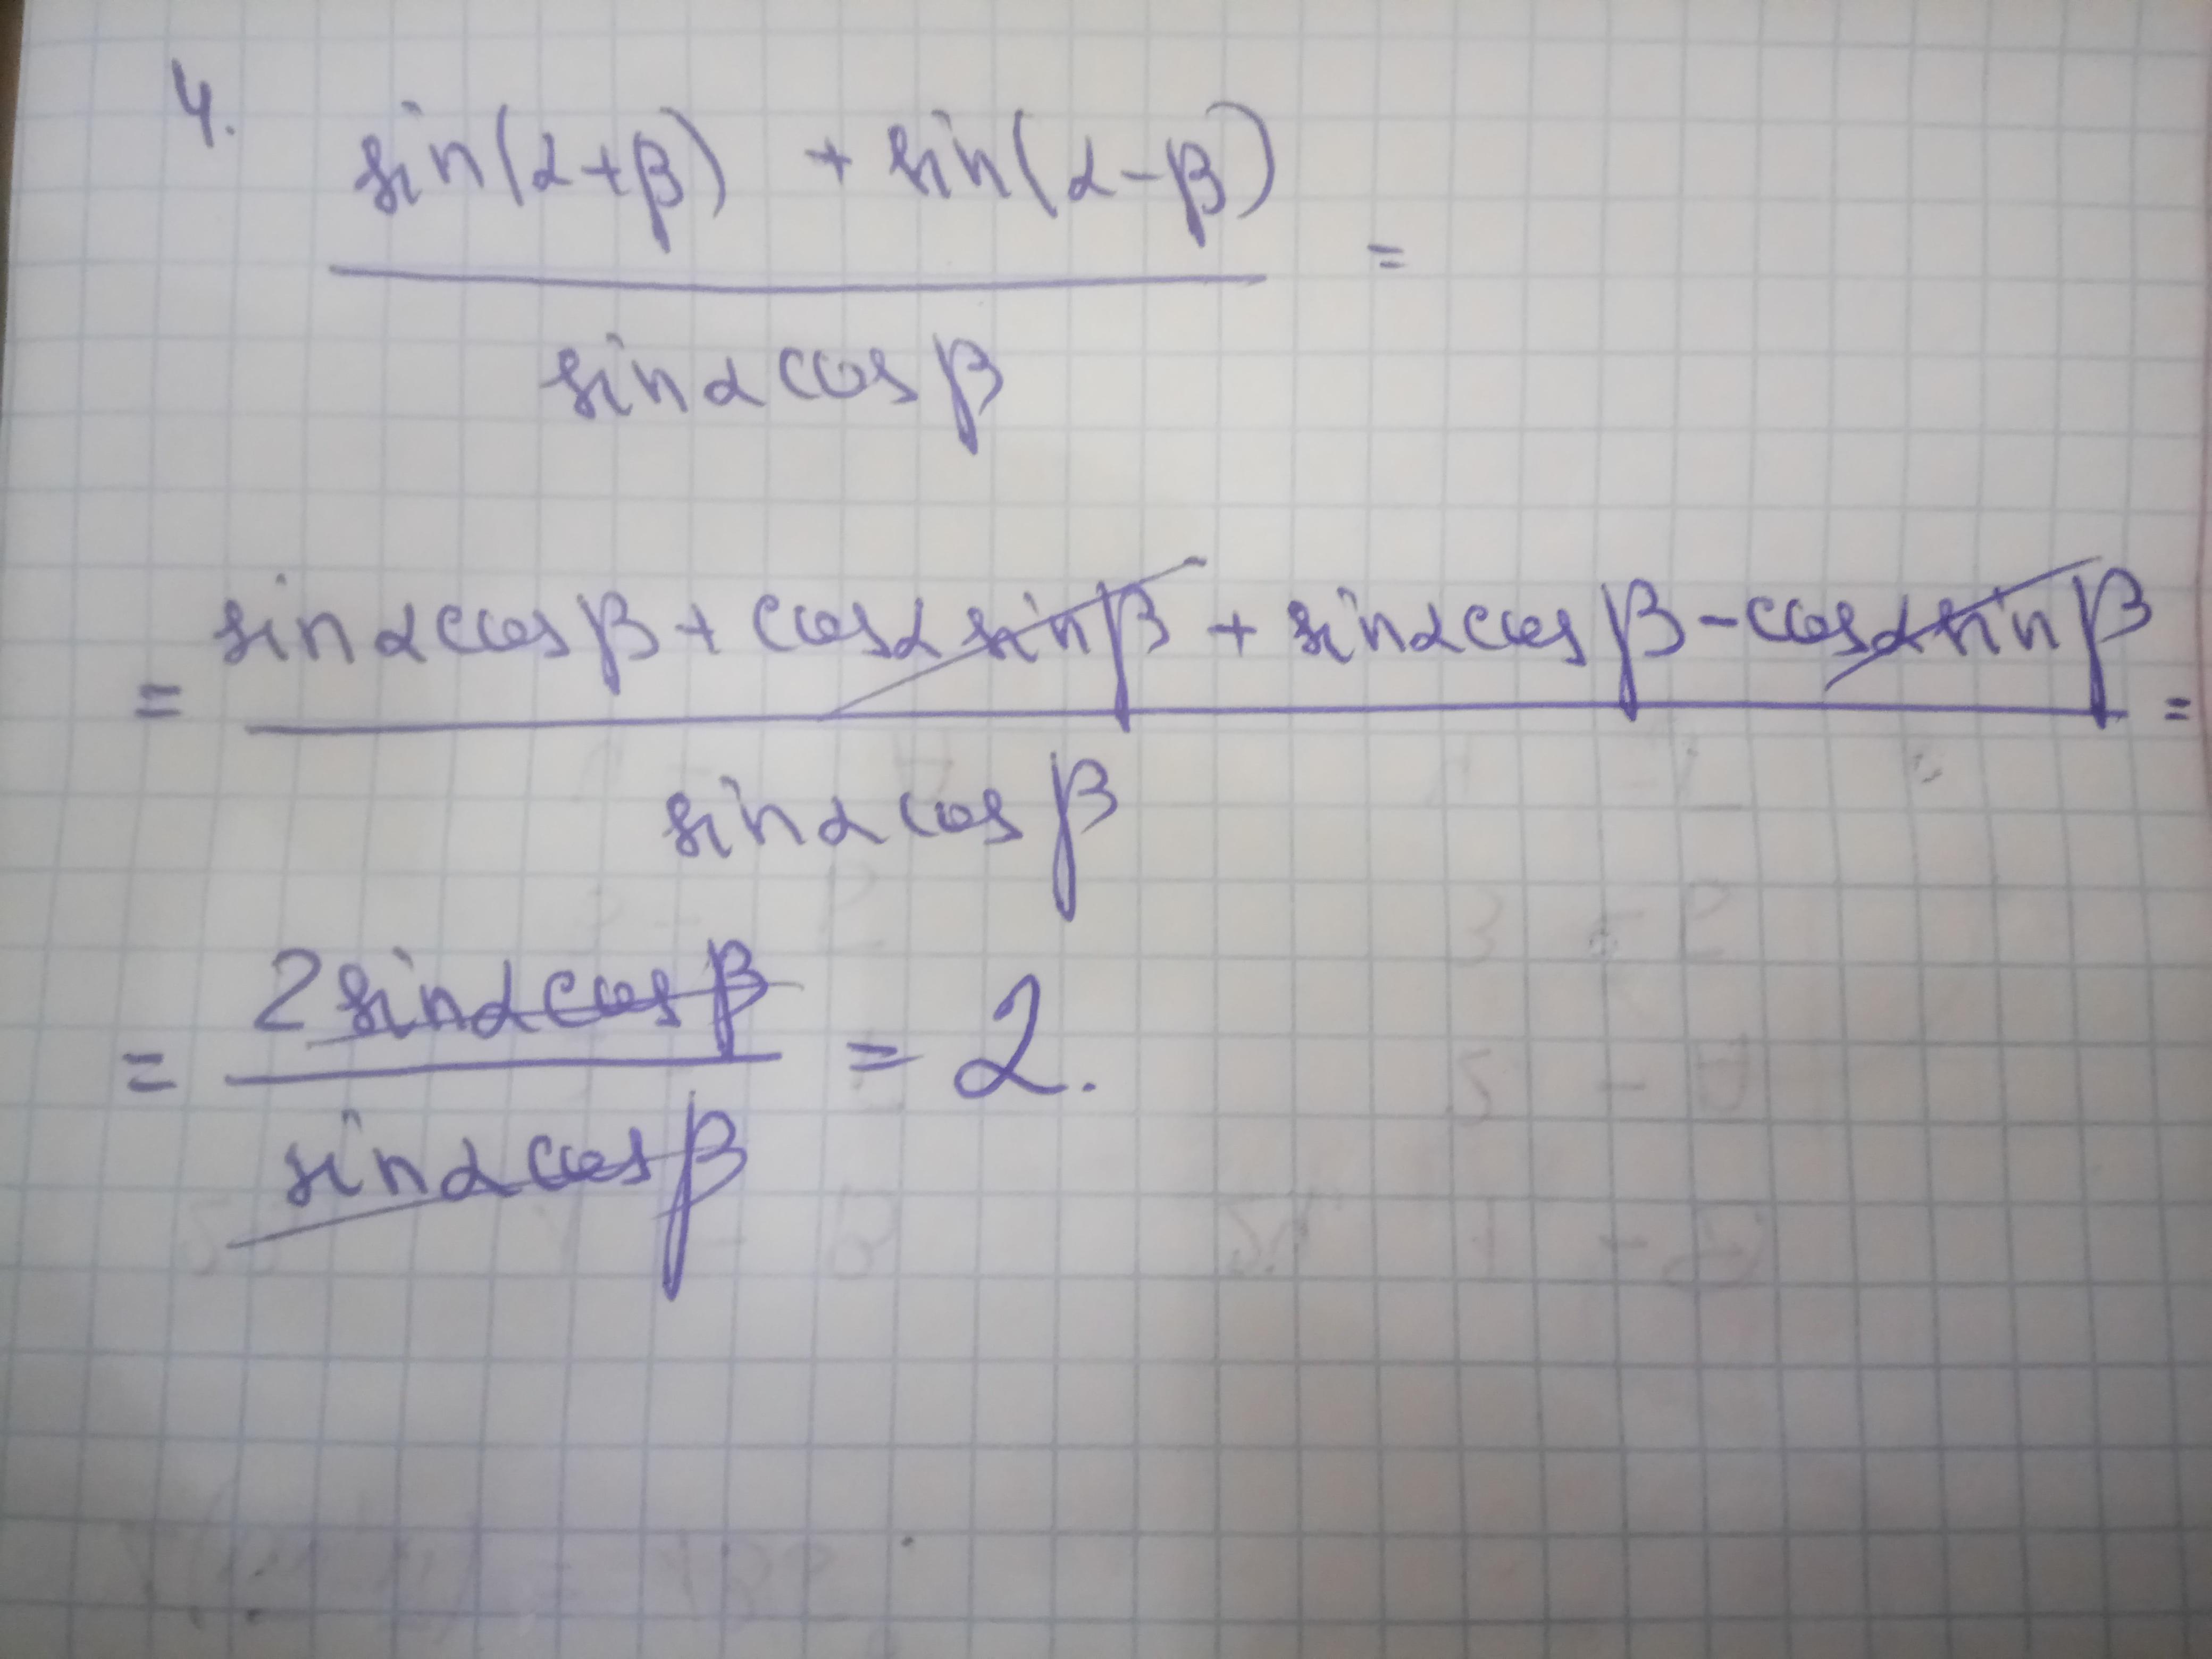 4.
sin(α+β) + sin(α-β)
=
sinα cos β
= sinα cos β + cosα sin β + sinα cos β - cosα sin β =
sinα cos β
= 2 sinα cos β = 2.
sinα cos β